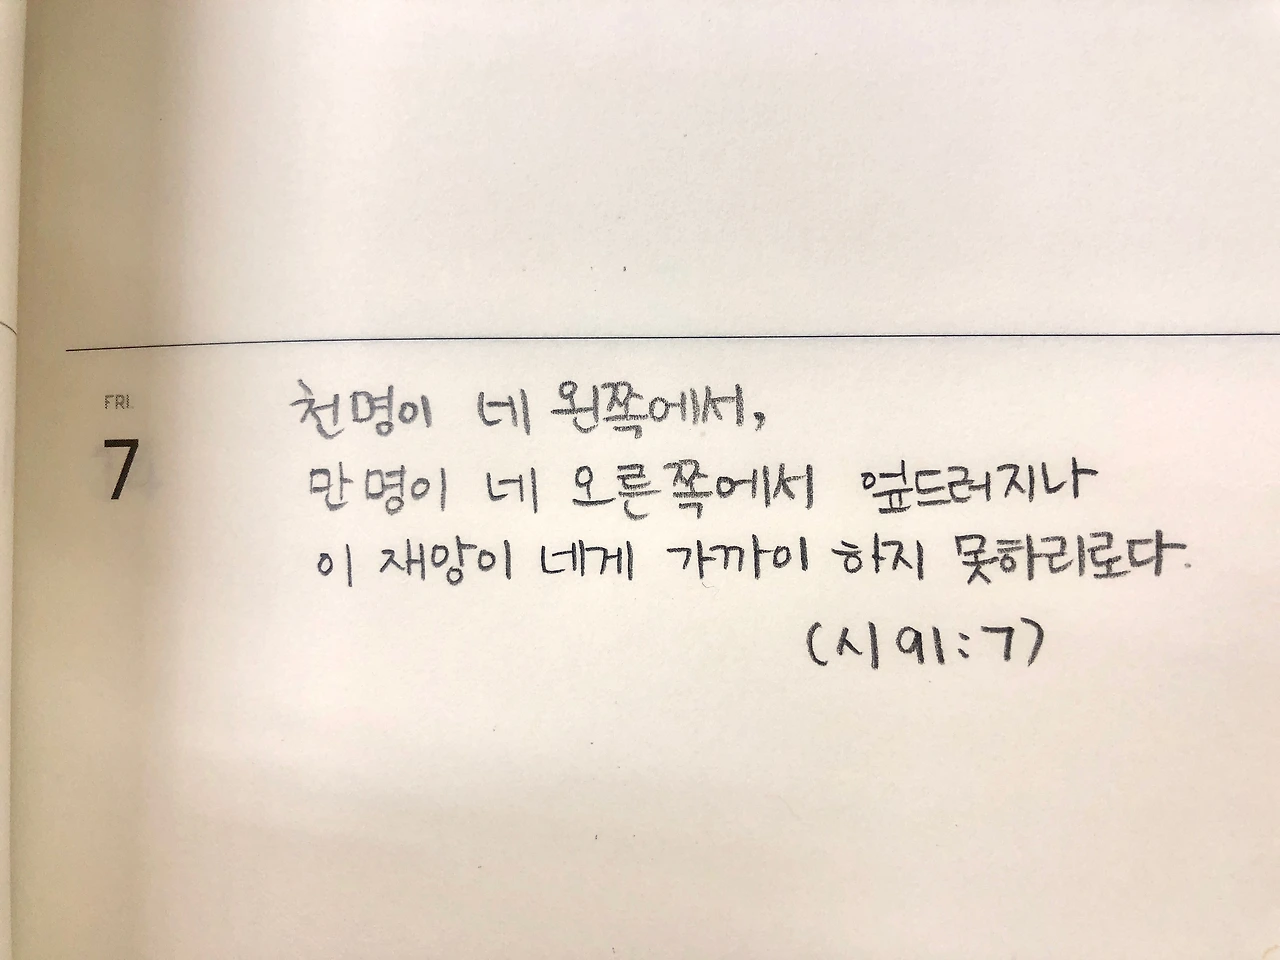 FRI.
7
천명이 네 왼쪽에서,
만명이 네 오른쪽에서 엎드러지나
이 재앙이 네게 가까이 하지 못하리로다.
(시 91:7)